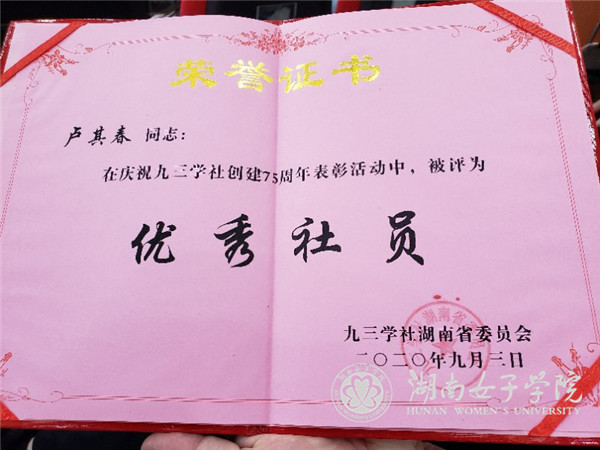 荣誉证书
卢其春 同志：
在庆祝九三学社创建75周年表彰活动中，被评为
优秀社员
九三学社湖南省委员会
二〇二〇年九月三日
湖南女子学院
HUNAN WOMEN'S UNIVERSITY